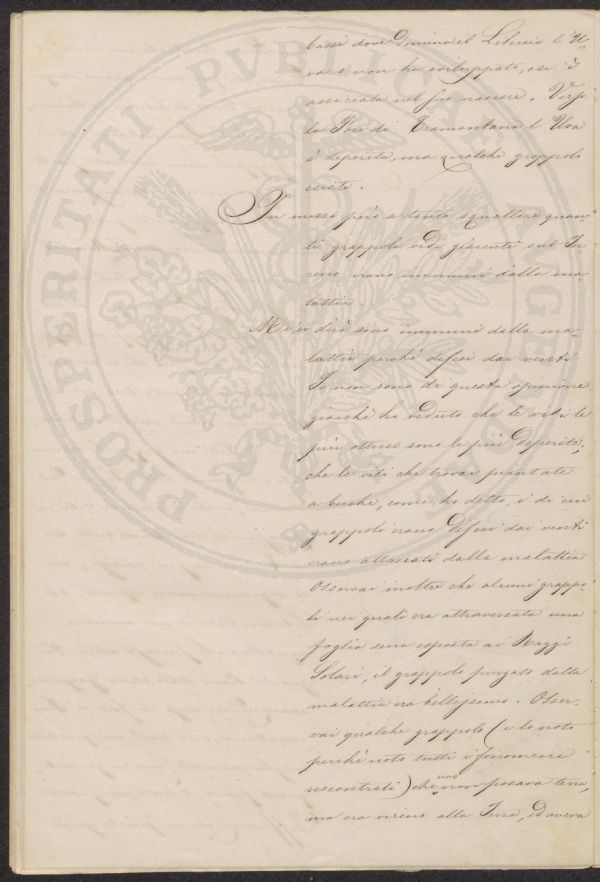 bassi dove domina el Libecio l'U-
va è non ha sviluppato, o si è
assiccata nel suo nascere. Verso
la Foce di Tramontana l'Uva
è deperita, ma qualche grappolo
esiste.
In mezzo però a tanto squallore quan-
ti grappoli vidi giacenti sul Ter-
reno erano immuni dalla ma-
lattia.
Mi si dirà sono immuni dalla ma-
lattia perchè difesi dai venti
Io non sono di questa opinione
giacchè ho veduto che le viti le
più ottuse sono le più deperite,
che le viti che trovai piantate
a buche, come ho detto, i di cui
grappoli erano difesi dai venti
erano attaccati dalla malattia
Osservai inoltre che alcuni grappo-
li nei quali era attraversata una
foglia secca esposta ai Raggi
Solari, il grappolo purgato dalla
malattia era bellissimo. Osser-
vai qualche grappolo (e lo noto
perchè noto tutti i fenomeni
riscontrati) che uno non posava terra,
ma era vicino alla Terra, ed aveva
PROSPERITATI PVBLICAE AVGENDAE